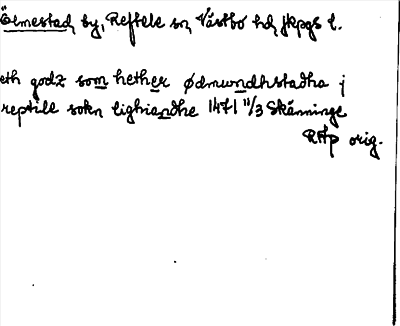 Ölmestad, by, Reftele sn, Västbo hd, Jkpgs l.
eth godz som hether ødmwndhstadha j
reptile sokn lighiandhe 1471 11/3 Skänninge
RAp orig.